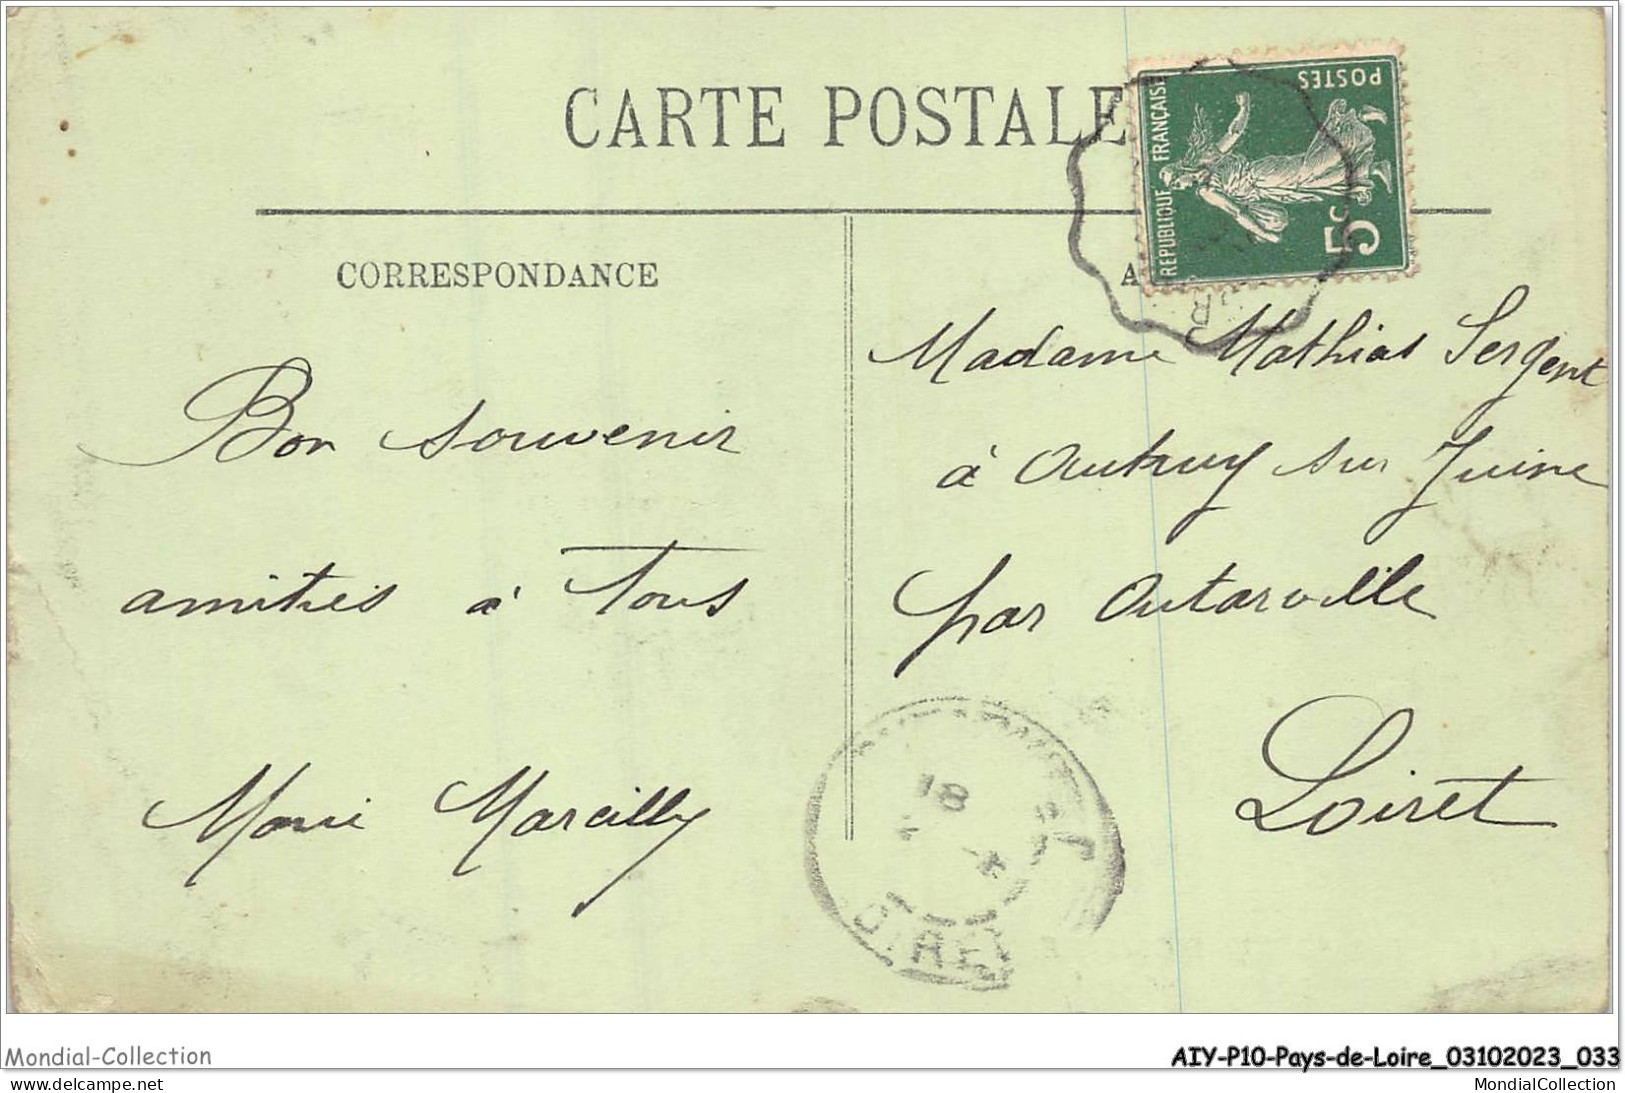 CARTE POSTALE
REPUBLIQUE FRANÇAISE
POSTES
5c
CORRESPONDANCE
Bon souvenir
amitiés à Tous
Marie Marcilly
Madame Mathias Sergent
à Autruy sur Juine
par Outarville
Loiret
18
Mondial-Collection
AIY-P10-Pays-de-Loire_03102023_033
MondialCollection